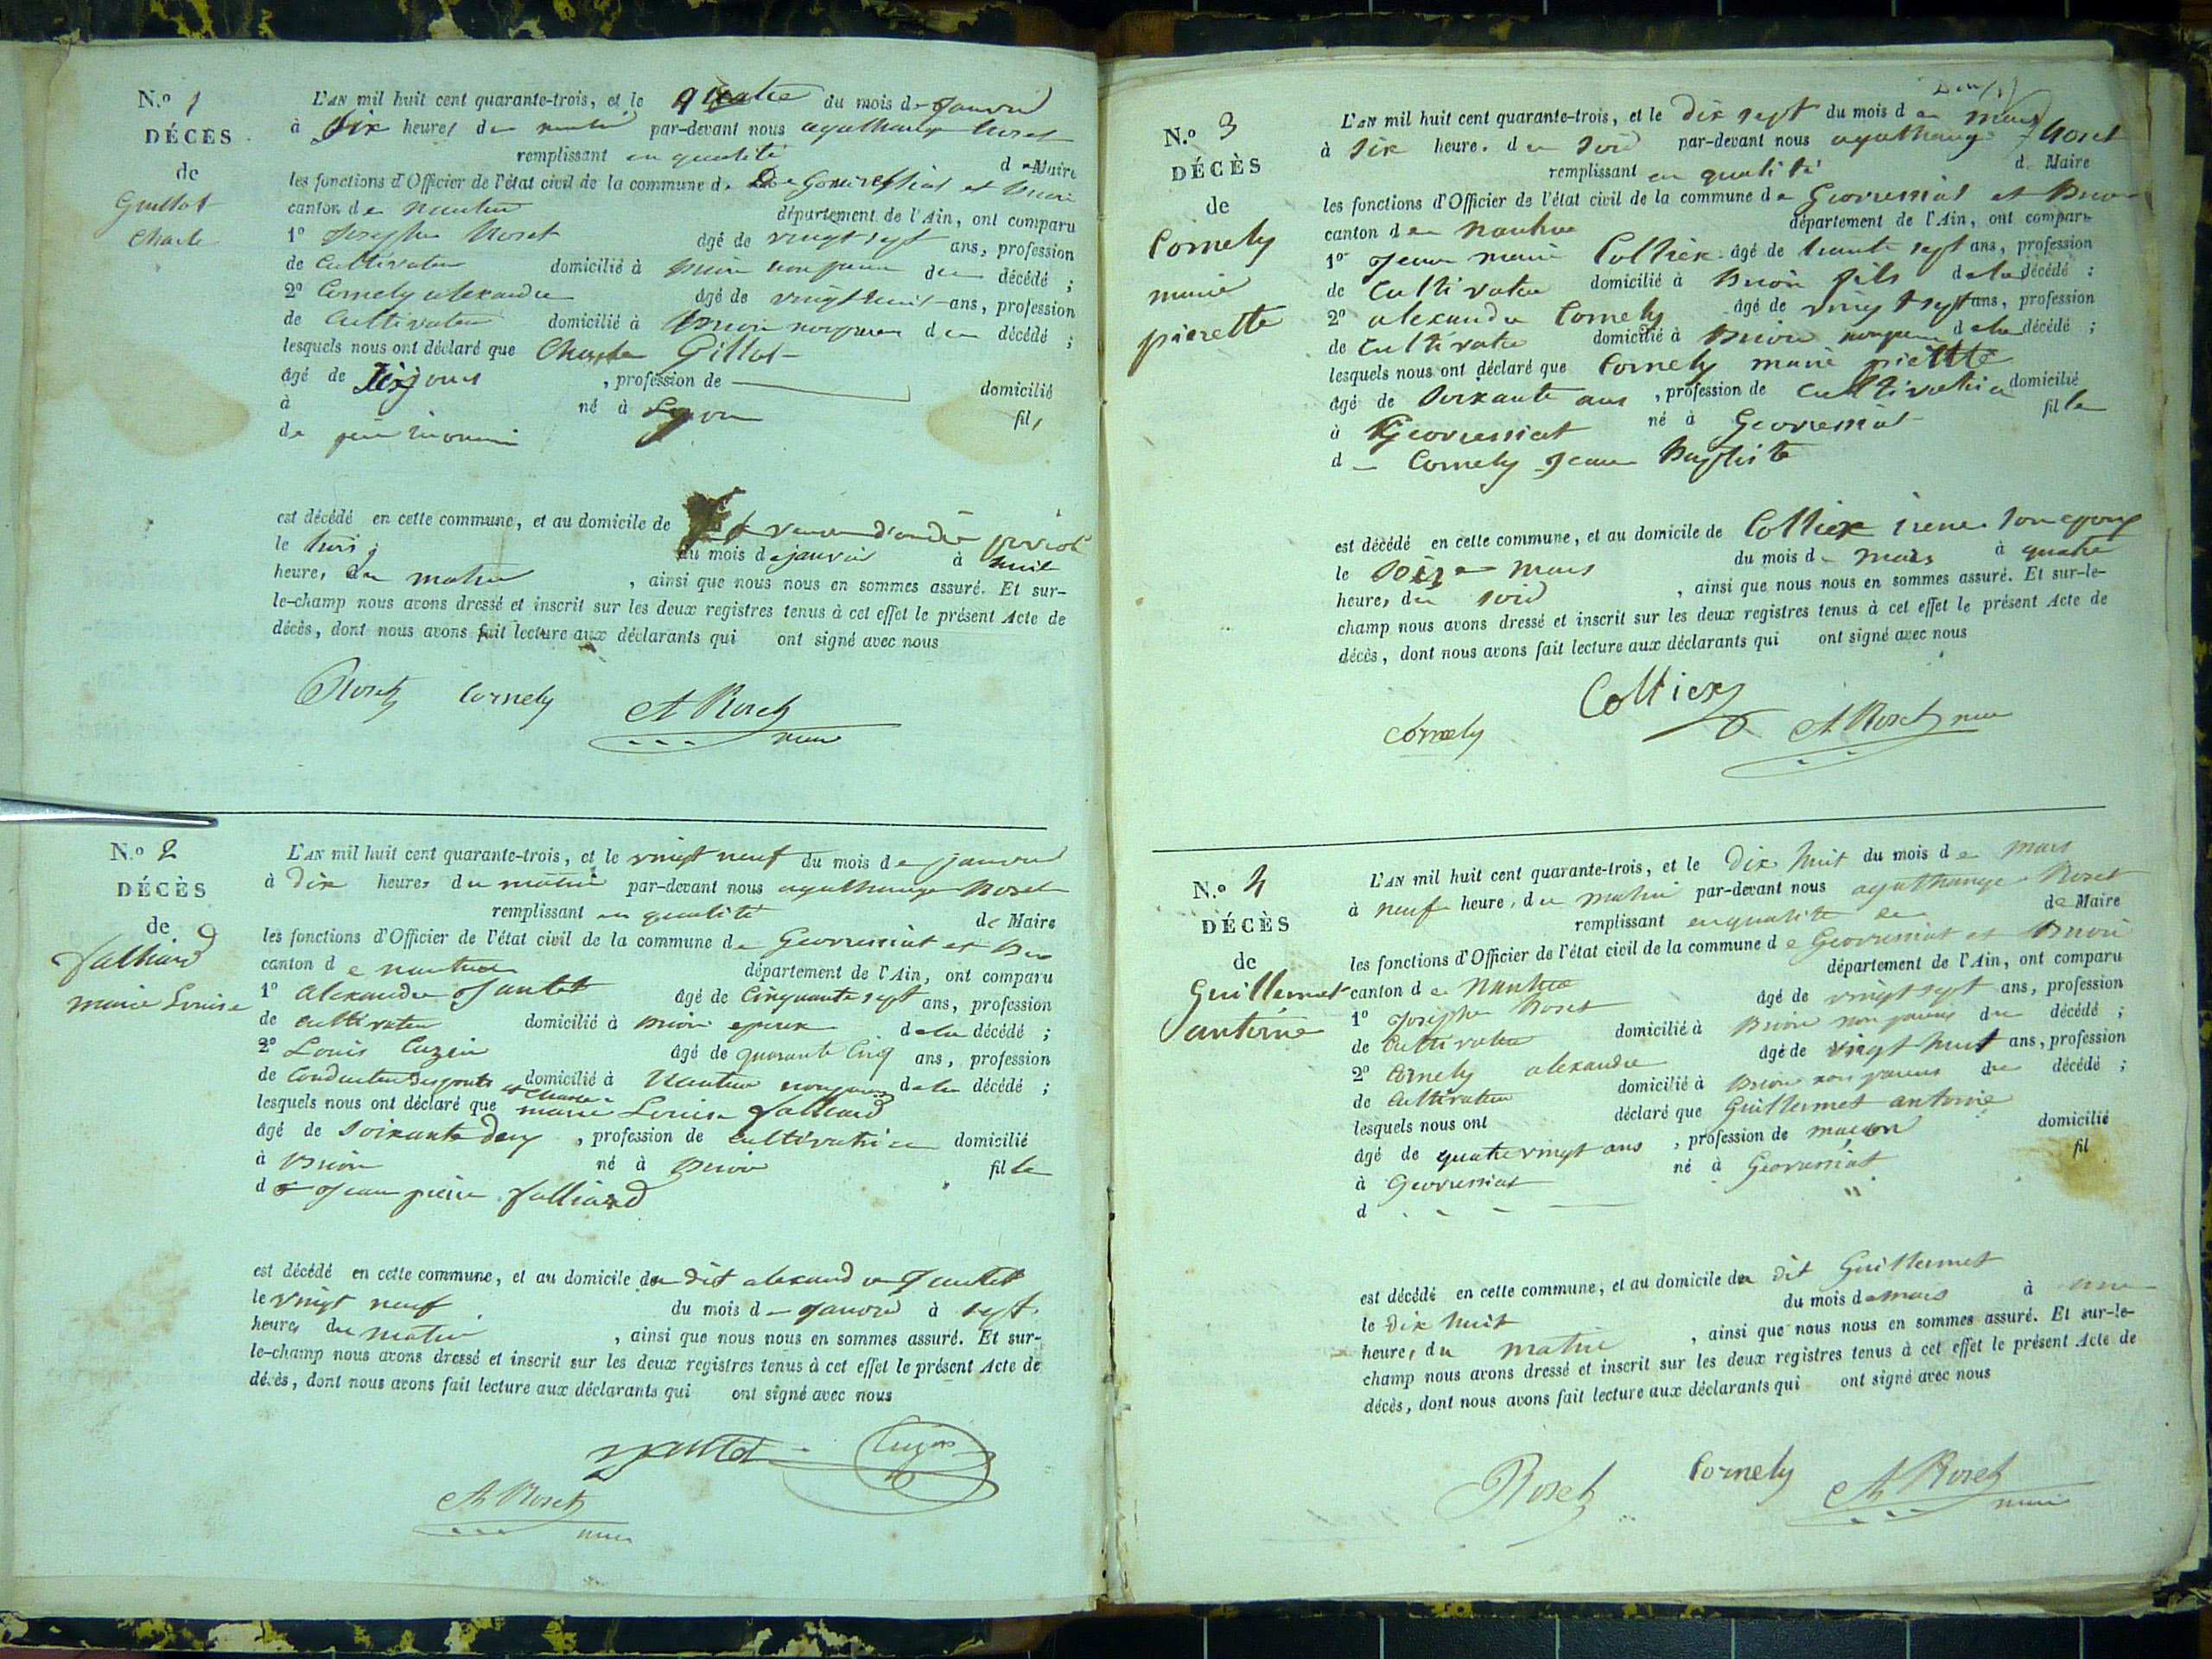 N.o 1
DÉCÈS
de
Guillot
Charle
L'AN mil huit cent quarante-trois, et le quatre du mois de Janvier
à dix heures du matin par-devant nous agathange Roset
remplissant en qualité de Maire
les fonctions d'Officier de l'état civil de la commune de
canton de nantua département de l'Ain, ont comparu
1o Josephe Roset âgé de vingt sept ans, profession
de Cultivateur domicilié à Brion non paren du décédé ;
2o Cornely alexandre âgé de vingt huit ans, profession
de Cultivateur domicilié à Brion non paren du décédé ;
lesquels nous ont déclaré que Charle Gillot
âgé de jours , profession de domicilié
à né à Lyon fils
de père inconnu
est décédé en cette commune, et au domicile de veuve d'andré
le trois du mois de janvier à huit
heures du matin , ainsi que nous nous en sommes assuré. Et sur-
le-champ nous avons dressé et inscrit sur les deux registres tenus à cet effet le présent Acte de
décès, dont nous avons fait lecture aux déclarants qui ont signé avec nous
Roset Cornely A Roset
maire
N.o 2
DÉCÈS
de
Jalliard
marie Louise
L'AN mil huit cent quarante-trois, et le vingt neuf du mois de janvier
à dix heures du matin par-devant nous agathange Roset
remplissant en qualité de Maire
les fonctions d'Officier de l'état civil de la commune de Geovressiat et Brion
canton de nantua département de l'Ain, ont comparu
1o alexandre Jantet âgé de Cinquante sept ans, profession
de cultivateur domicilié à Brion epoux de la décédé ;
2o Louis Cuzin âgé de quarante Cinq ans, profession
de Conducteur des ponts et chaussé domicilié à Nantua non parens de la décédé ;
lesquels nous ont déclaré que marie Louise Jalliard
âgé de soixante deux , profession de cultivatrice domicilié
à Brion né à Brion fille
de Jean pierre Jalliard
est décédé en cette commune, et au domicile du dit alexandre Jantet
le vingt neuf du mois de Janvier à sept
heures du matin , ainsi que nous nous en sommes assuré. Et sur-
le-champ nous avons dressé et inscrit sur les deux registres tenus à cet effet le présent Acte de
décès, dont nous avons fait lecture aux déclarants qui ont signé avec nous
Jantet Cuzin
A Roset
maire
N.o 3
DÉCÈS
de
Cornely
marie
pierette
L'AN mil huit cent quarante-trois, et le dix sept du mois de mars
à six heure. du soir par-devant nous agathange Roset
remplissant en qualité de Maire
les fonctions d'Officier de l'état civil de la commune de Geovressiat et Brion
canton de Nantua département de l'Ain, ont comparu
1o Jean marie Colliex âgé de trante sept ans, profession
de Cultivateur domicilié à Brion fils de la décédé ;
2o alexandre Cornely âgé de vingt sept ans, profession
de Cultivateur domicilié à Brion non paren de la décédé ;
lesquels nous ont déclaré que Cornely marie pierette
âgé de soixante ans , profession de cultivatrice domicilié
à Geovressiat né à Geovressiat fille
de Cornely Jean Baptiste
est décédé en cette commune, et au domicile de Colliex irene son epoux
le mars du mois de mars à quatre
heures du soir , ainsi que nous nous en sommes assuré. Et sur-le-
champ nous avons dressé et inscrit sur les deux registres tenus à cet effet le présent Acte de
décès, dont nous avons fait lecture aux déclarants qui ont signé avec nous
Colliex
Cornely A Roset maire
N.o 4
DÉCÈS
de
Guillermet
antoine
L'AN mil huit cent quarante-trois, et le dix huit du mois de mars
à neuf heure, du matin par-devant nous agathange Roset
remplissant en qualité de de Maire
les fonctions d'Officier de l'état civil de la commune de Geovressiat et Brion
canton de Nantua département de l'Ain, ont comparu
1o Josephe Roset âgé de vingt sept ans, profession
de Cultivateur domicilié à Brion non parens du décédé ;
2o Cornely alexandre âgé de vingt huit ans, profession
de Cultivateur domicilié à Brion non parens du décédé ;
lesquels nous ont déclaré que Guillermet antoine
âgé de quatre vingt ans , profession de maçon domicilié
à Geovressiat né à Geovressiat fil
d
est décédé en cette commune, et au domicile du dit Guillermet
le dix huit du mois de mars à une
heures du matin , ainsi que nous nous en sommes assuré. Et sur-le-
champ nous avons dressé et inscrit sur les deux registres tenus à cet effet le présent Acte de
décès, dont nous avons fait lecture aux déclarants qui ont signé avec nous
Roset Cornely A Roset
maire